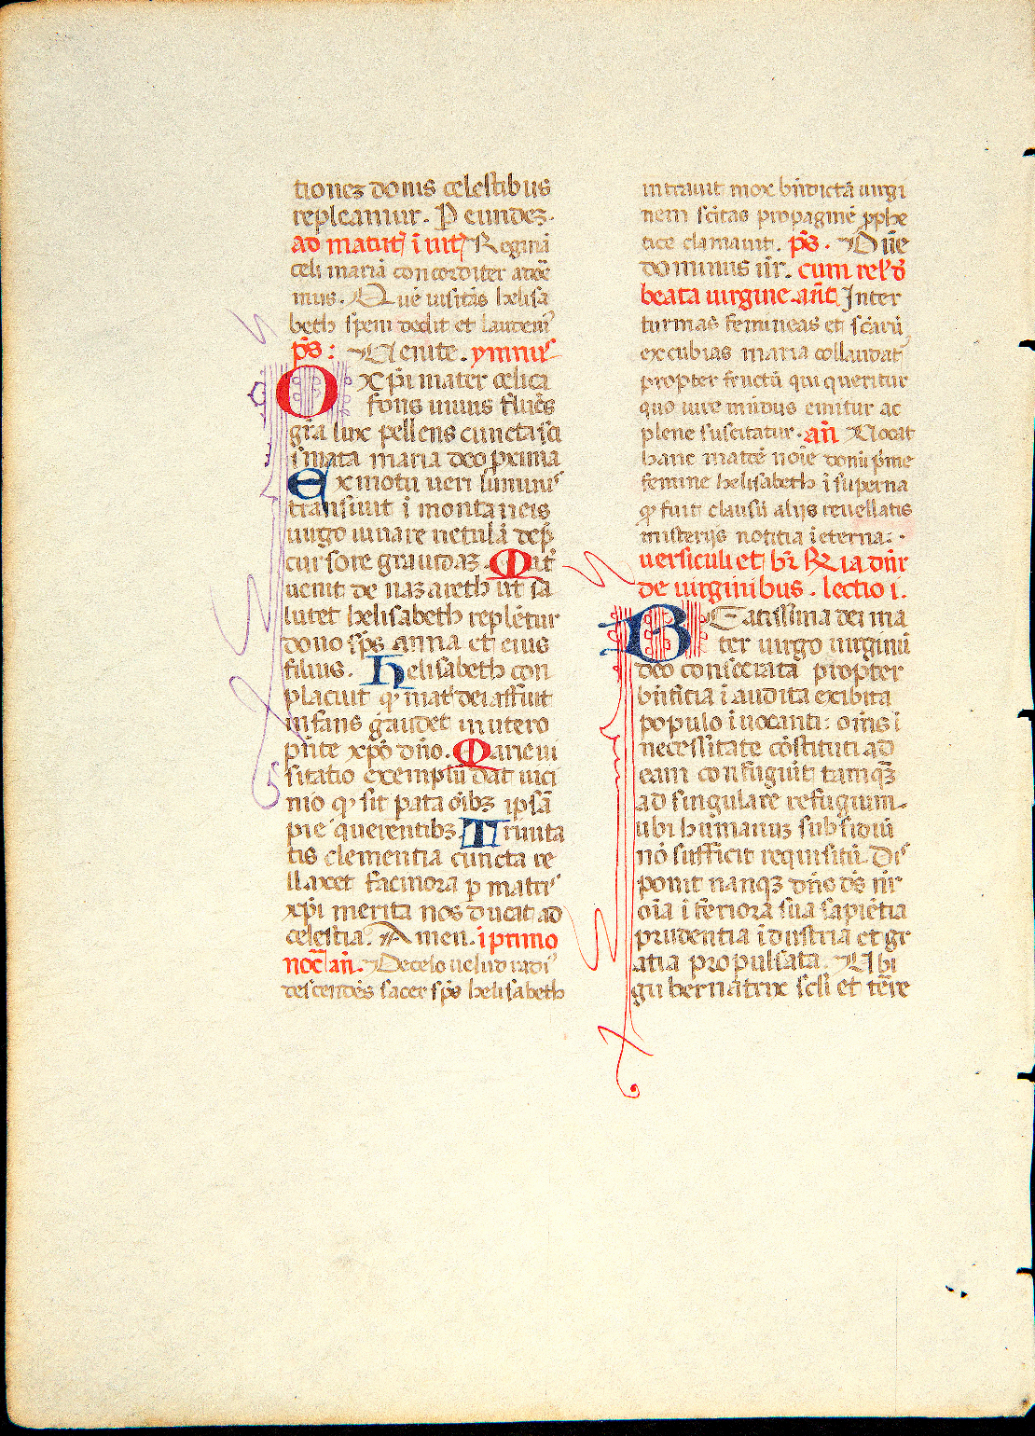 tionez donis celestibus
repleamur. P eundez.
ad matut̄ ī uit̄ Reginā
celi mariā concorditer adore
mus. Que uisitās helisa
beth spem dedit et laudem
pš: Uenite. ymnus
O xp̄i mater celica
fons uiuus fluēs
gr̄a lux pellens cuncta sci
smata maria deo proxima
Ex motu ueri luminis
transiuit ī montaneis
uirgo iuuare uetulā de p̄
cursore grauidaz. Mat̄
uenit de nazareth ut sa
lutet helisabeth repletur
dono sp̄s anna et eius
filius. Helisabeth con
placuit qꝫ mat̄ dei affuit
infans gaudet in utero
p̄nte xp̄o dn̄o. Marie ui
sitatio exemplū dat uici
nio qꝫ sit pata oībꝫ ipsā
pie querentibꝫ. Trinita
tis clementia cuncta re
llaxet facinora p matris
xp̄i merita nos ducat ad
celestia. Amen. ī primo
noc̄ an̄. De celo uelud radi
descendēs sacer sp̄s helisabeth
intrauit mox bn̄dictā uirgi
nem sc̄itas propagine p̄phe
tice clamauit. pš. Dn̄e
dominus nr̄. cum rel' d'
beata uirgine. an̄t Inter
turmas femineas et sc̄arū
excubias maria collaudat̄
propter fructū qui queritur
quo iure mūdus emitur ac
plene suscitatur. an̄ Uocat
hanc matrē noīe domī p̄me
femine helisabeth ī superna
qꝫ fuit clausū alijs reuellatis
misterijs notitia īeterna.
uersiculi et br̄ Rx ia dn̄r
de uirginibus. lectio i.
Beatissima dei ma
ter uirgo uirginū
deo consecrata propter
bn̄ficia ī audita exibita
populo īuocanti: om̄s ī
necessitate cōstituti ad
eam confugiūt tamqꝫ
ad singulare refugium.
ubi humanuz subsidiū
nō sufficit requisitū. Dis
ponit nanqꝫ dn̄o ds̄ nr̄
oīa īferiora sua sapiētia
prudentia īdustria et gr
atia propulsata. Ubi
gubernatrix seli et terre